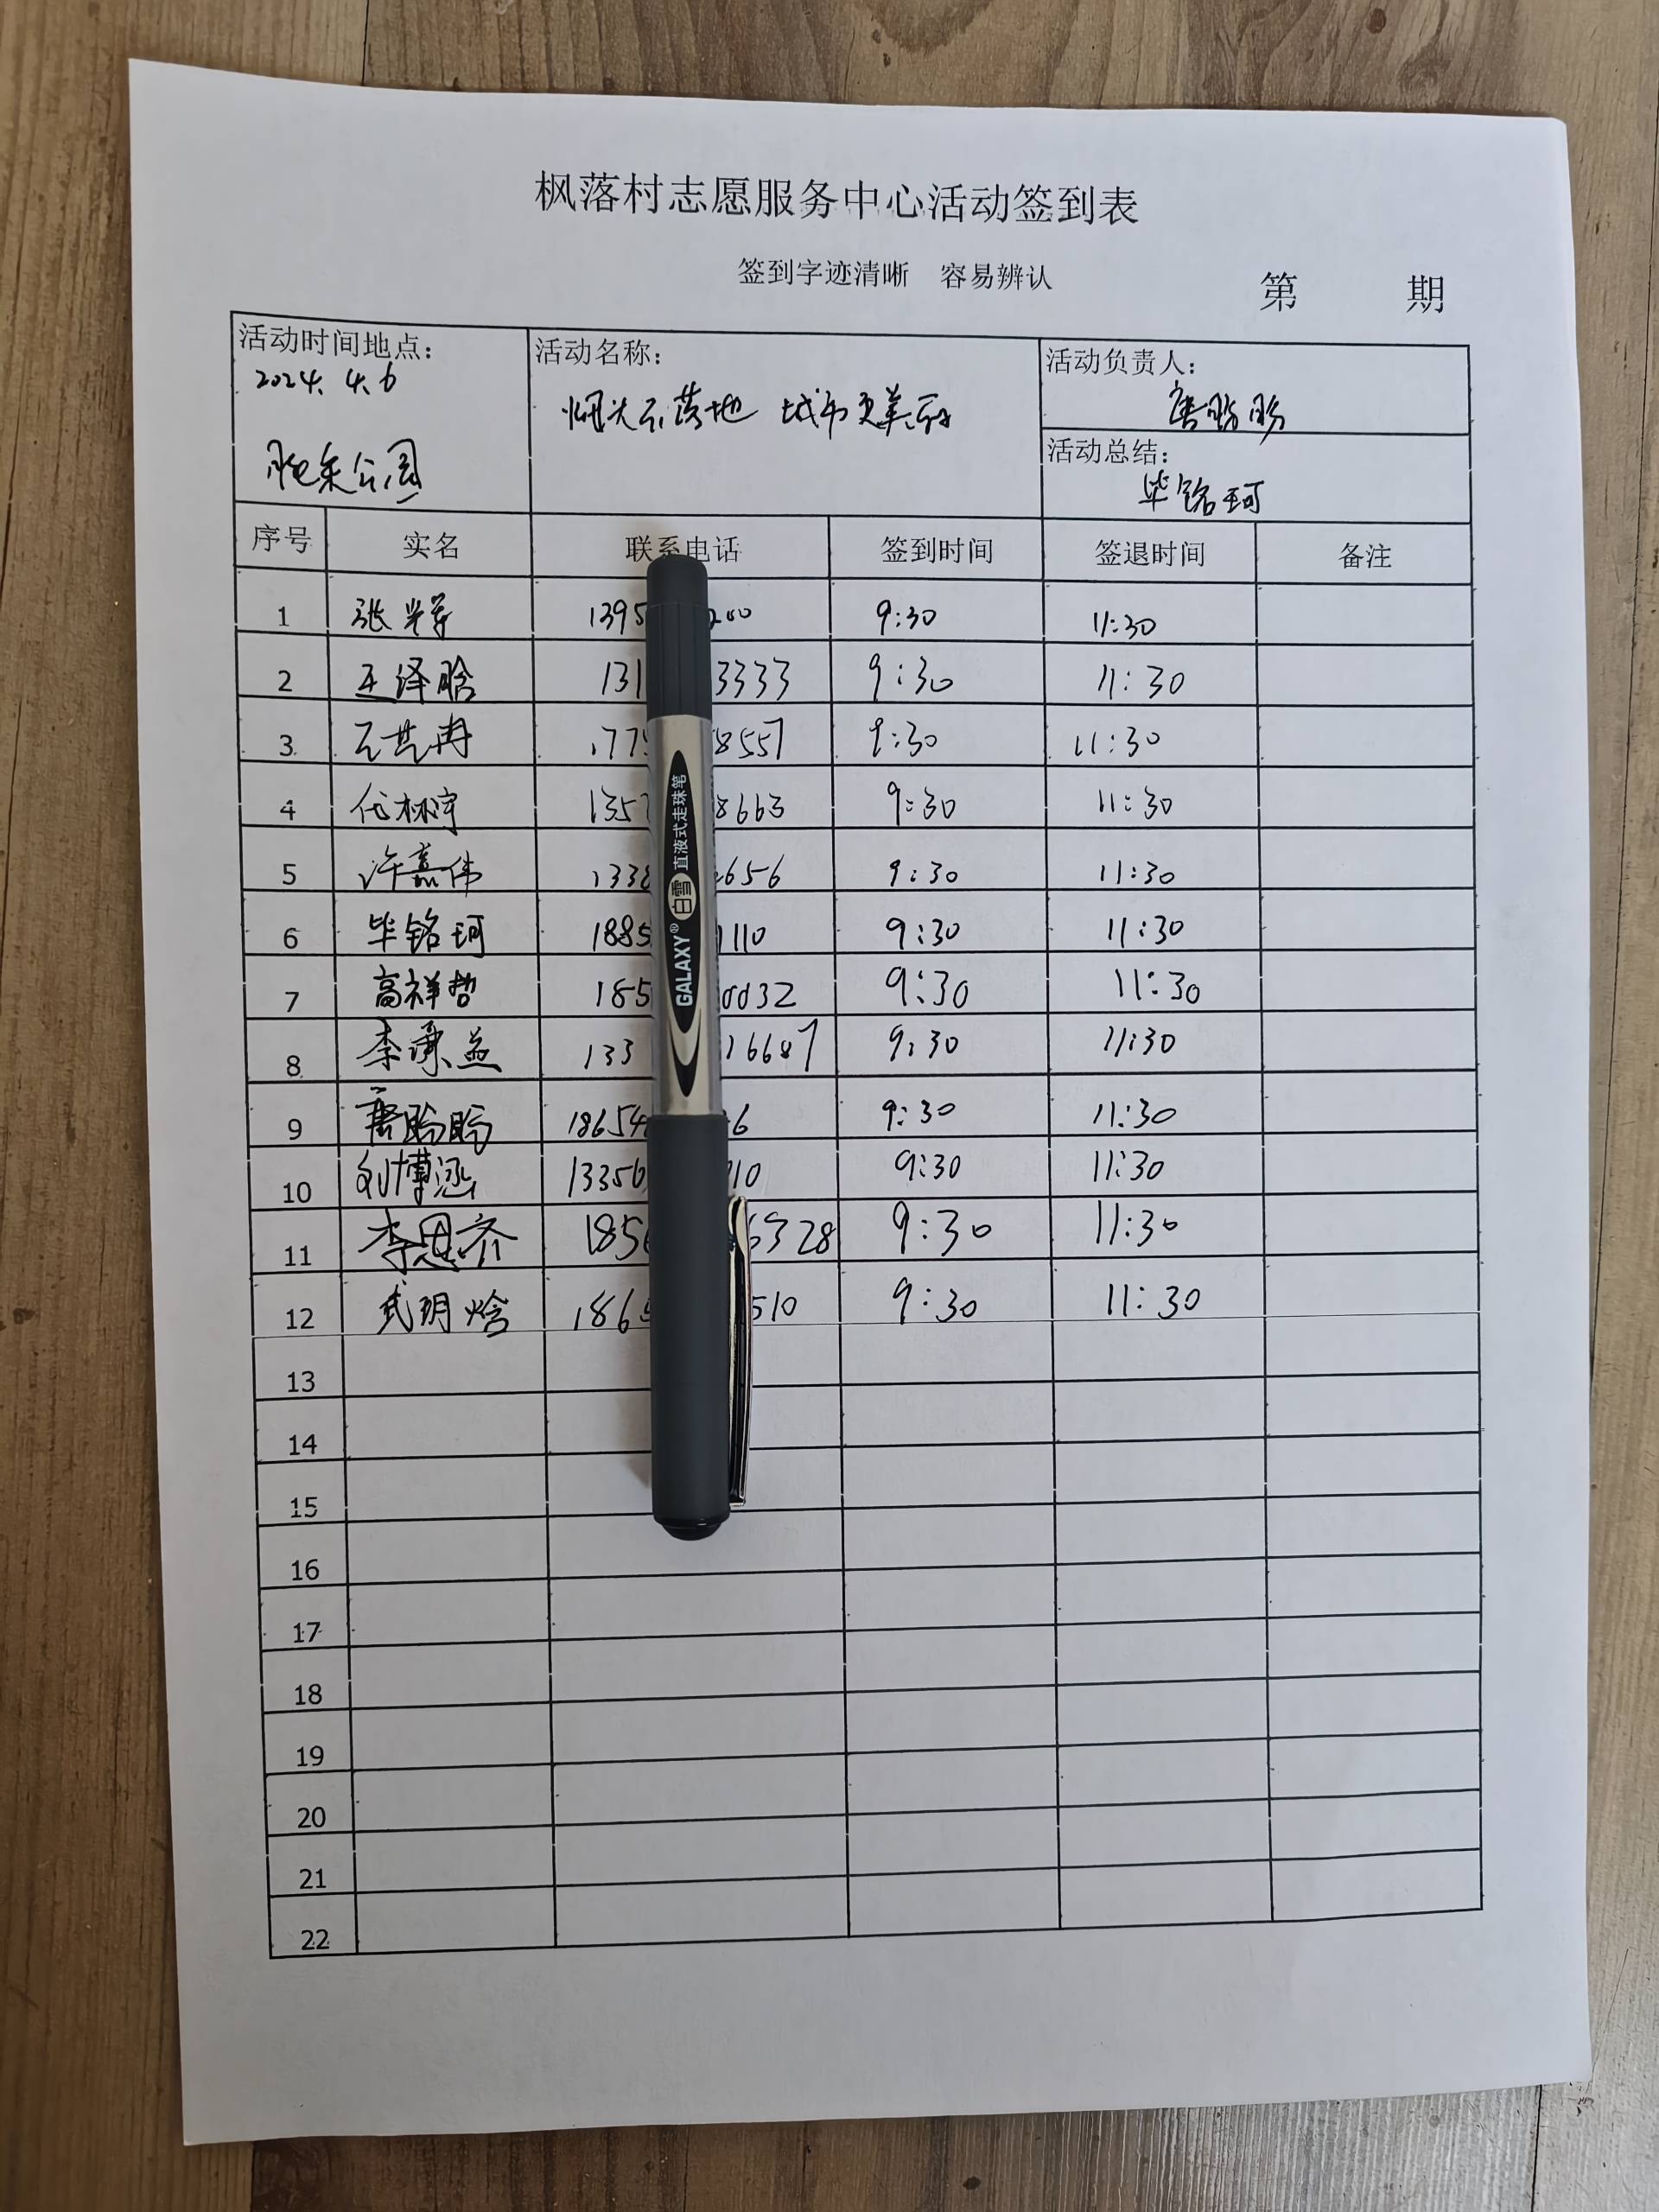 枫落村志愿服务中心活动签到表
签到字迹清晰 容易辨认
第 期
活动时间地点：
2024.4.6
公园
活动名称：
烟头不落地 城市更美丽
活动负责人：
唐盼盼
活动总结：
毕铭珂
序号 实名 联系电话 签到时间 签退时间 备注
1 张 1395 200 9:30 11:30
2 王泽晗 131 3333 9:30 11:30
3 冉 1775 8557 9:30 11:30
4 代林宇 1357 8663 9:30 11:30
5 许嘉伟 1338 656 9:30 11:30
6 毕铭珂 1885 1110 9:30 11:30
7 高祥哲 185 0032 9:30 11:30
8 李承益 133 16687 9:30 11:30
9 唐盼盼 18654 6 9:30 11:30
10 刘博涵 13356 10 9:30 11:30
11 李恩齐 1856 6328 9:30 11:30
12 武玥焓 1865 510 9:30 11:30
13
14
15
16
17
18
19
20
21
22
GALAXY® 白雪 直液式走珠笔